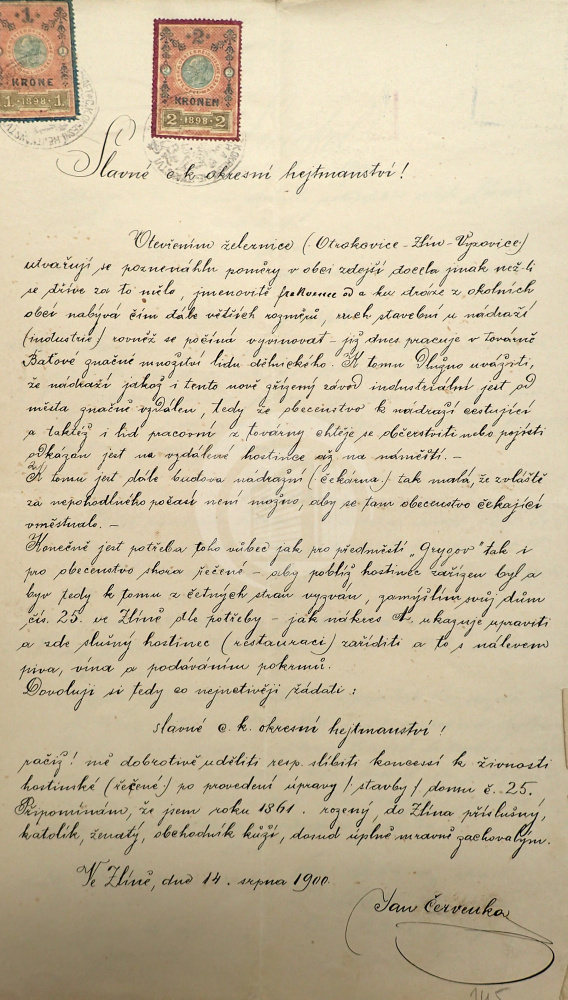 1
KRONE
1 1898 1
2
KRONEN
2 1898 2
Slavné c. k. okresní hejtmanství!
Otevřením železnice (Otrokovice – Zlín – Vyzovice)
utvařují se poznenáhlu poměry v obci zdejší docela jinak než-li
se dříve za to mělo, jmenovitě frekvence od a ku dráze z okolních
obcí nabývá čím dále větších rozměrů, ruch stavební u nádraží
(industrie) rovněž se počíná vyvinovat – již dnes pracuje v továrně
Baťové značné množství lidu dělnického. K tomu dlužno uvážiti,
že nádraží jakož i tento nově zřízený závod industriální jest od
města značně vzdálen, tedy že obecenstvo k nádraží cestující
a taktéž i lid pracovní z továrny chtěje se občerstviti nebo pojísti
odkázán jest na vzdálené hostince až na náměstí. –
K tomu jest dále budova nádražní (čekárna) tak malá, že zvláště
za nepohodlného počasí není možno, aby se tam obecenstvo čekající
vměstnalo. –
Konečně jest potřeba toho vůbec jak pro předměstí „Grygov" tak i
pro obecenstvo shora řečené – aby poblíž hostinec zařízen byl a
byv tedy k tomu z četných stran vyzván, zamýšlím svůj dům
čís. 25. ve Zlíně dle potřeby – jak nákres A. ukazuje upraviti
a zde slušný hostinec (restauraci) zaříditi a to s nálevem
piva, vína a podáváním pokrmů.
Dovoluji si tedy co nejuctivěji žádati:
slavné c. k. okresní hejtmanství!
račiž! mě dobrotivě uděliti resp. slíbiti koncessi k živnosti
hostinské (řečené) po provedení úpravy / stavby / domu č. 25.
Připomínám, že jsem roku 1861. rozený, do Zlína příslušný,
katolík, ženatý, obchodník kůží, dosud úplně mravně zachovalým.
Ve Zlíně, dne 14. srpna 1900.
Jan Červenka
145